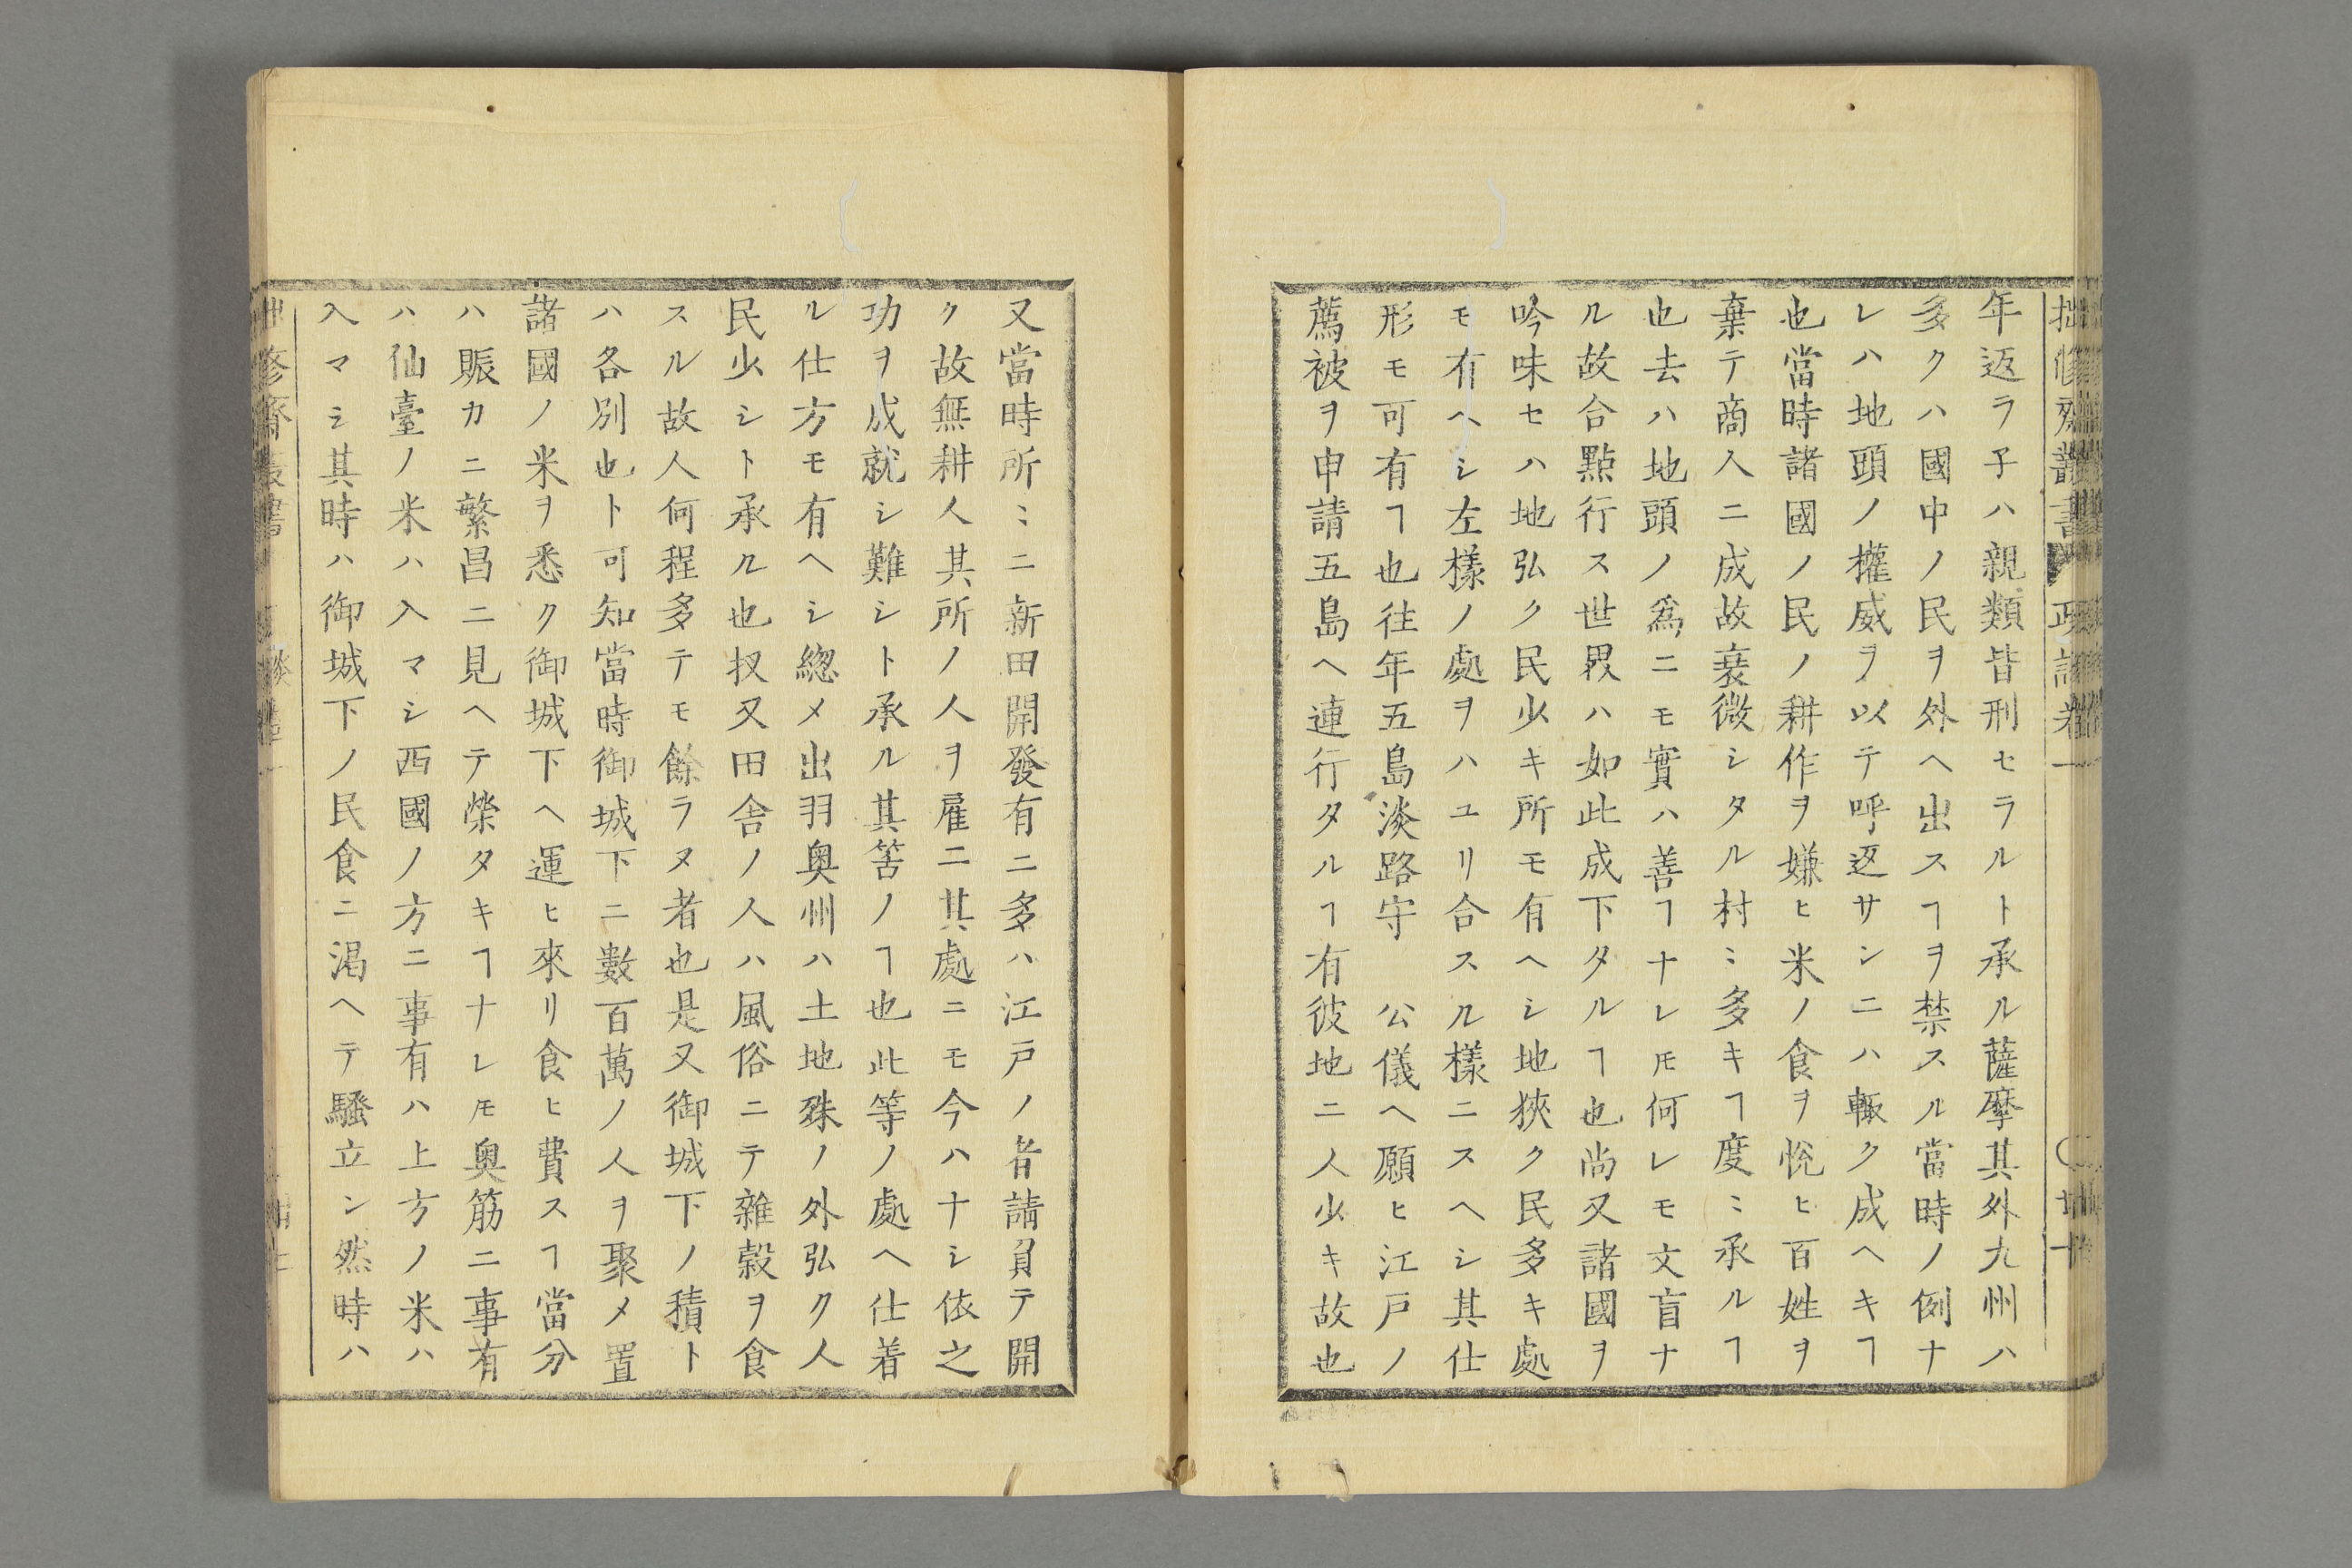 年返ラ子ハ親類皆刑セラルト承ル薩摩其外九州ハ
多クハ國中ノ民ヲ外ヘ出スヿヲ禁スル當時ノ例ナ
レハ地頭ノ權威ヲ以テ呼返サンニハ輙ク成ヘキヿ
也當時諸國ノ民ノ耕作ヲ嫌ヒ米ノ食ヲ悅ヒ百姓ヲ
棄テ商人ニ成故衰微シタル村〻多キヿ度〻承ルヿ
也去ハ地頭ノ爲ニモ實ハ善ヿナレ𪜈何レモ文盲ナ
ル故合點行ス世界ハ如此成下タルヿ也尚又諸國ヲ
吟味セハ地弘ク民少キ所モ有ヘシ地狹ク民多キ處
モ有ヘシ左樣ノ處ヲハユリ合スル樣ニスヘシ其仕
形モ可有ヿ也往年五島淡路守　公儀ヘ願ヒ江戸ノ
薦被ヲ申請五島ヘ連行タルヿ有彼地ニ人少キ故也
又當時所〻ニ新田開發有ニ多ハ江戸ノ者請負テ開
ク故無耕人其所ノ人ヲ雇ニ其處ニモ今ハナシ依之
功ヲ成就シ難シト承ル其筈ノヿ也此等ノ處ヘ仕着
ル仕方モ有ヘシ緫メ出羽奥州ハ土地殊ノ外弘ク人
民少シト承ル也扠又田舎ノ人ハ風俗ニテ雜穀ヲ食
スル故人何程多テモ餘ラヌ者也是又御城下ノ積ト
ハ各別也ト可知當時御城下ニ數百萬ノ人ヲ聚メ置
諸國ノ米ヲ悉ク御城下ヘ運ヒ來リ食ヒ費スヿ當分
ハ賑カニ繁昌ニ見ヘテ榮タキヿナレ𪜈奥筋ニ事有
ハ仙臺ノ米ハ入マシ西國ノ方ニ事有ハ上方ノ米ハ
入マシ其時ハ御城下ノ民食ニ渇ヘテ騷立ン然時ハ